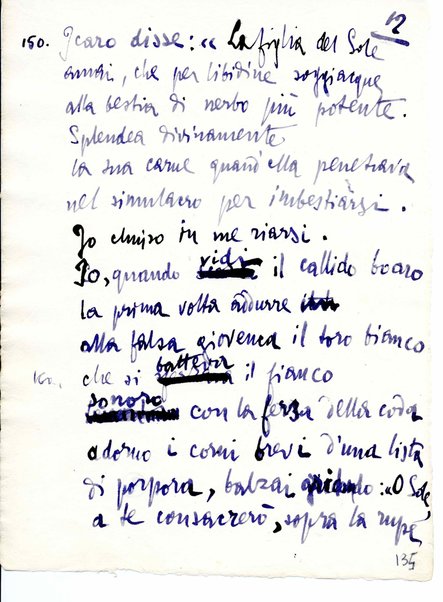 12
150. Icaro disse: « La figlia del Sole
amai, che per libidine soggiacque
alla bestia di nerbo più potente.
Splendea divinamente
la sua carne quand'ella penetrava
nel simulacro per imbestiarsi.
Io chiuso in me riarsi.
Io, quando vidi il callido boaro
la prima volta addurre
alla falsa giovenca il toro bianco
160. che si batteva il fianco
sonoro con la ferza della coda
adorno i corni brevi d'una lista
di porpora, balzai gridando: «O Sole,
a te consacrerò, sopra la rupe
135